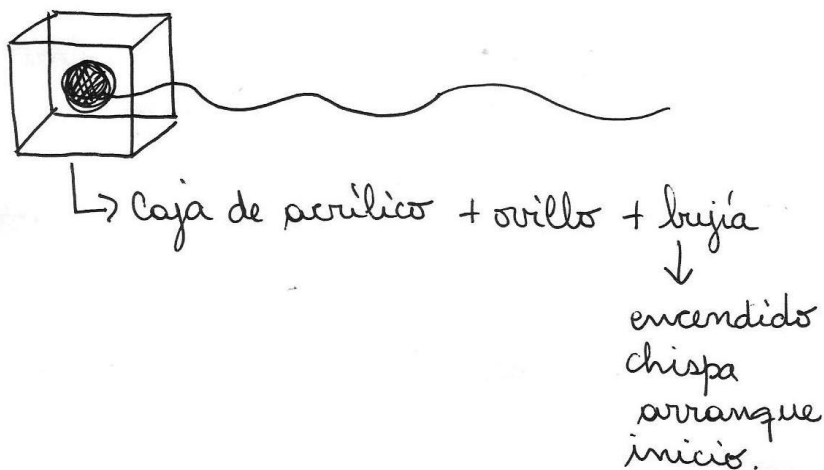 Caja de acrílico + ovillo + bujía
encendido
chispa
arranque
inicio.